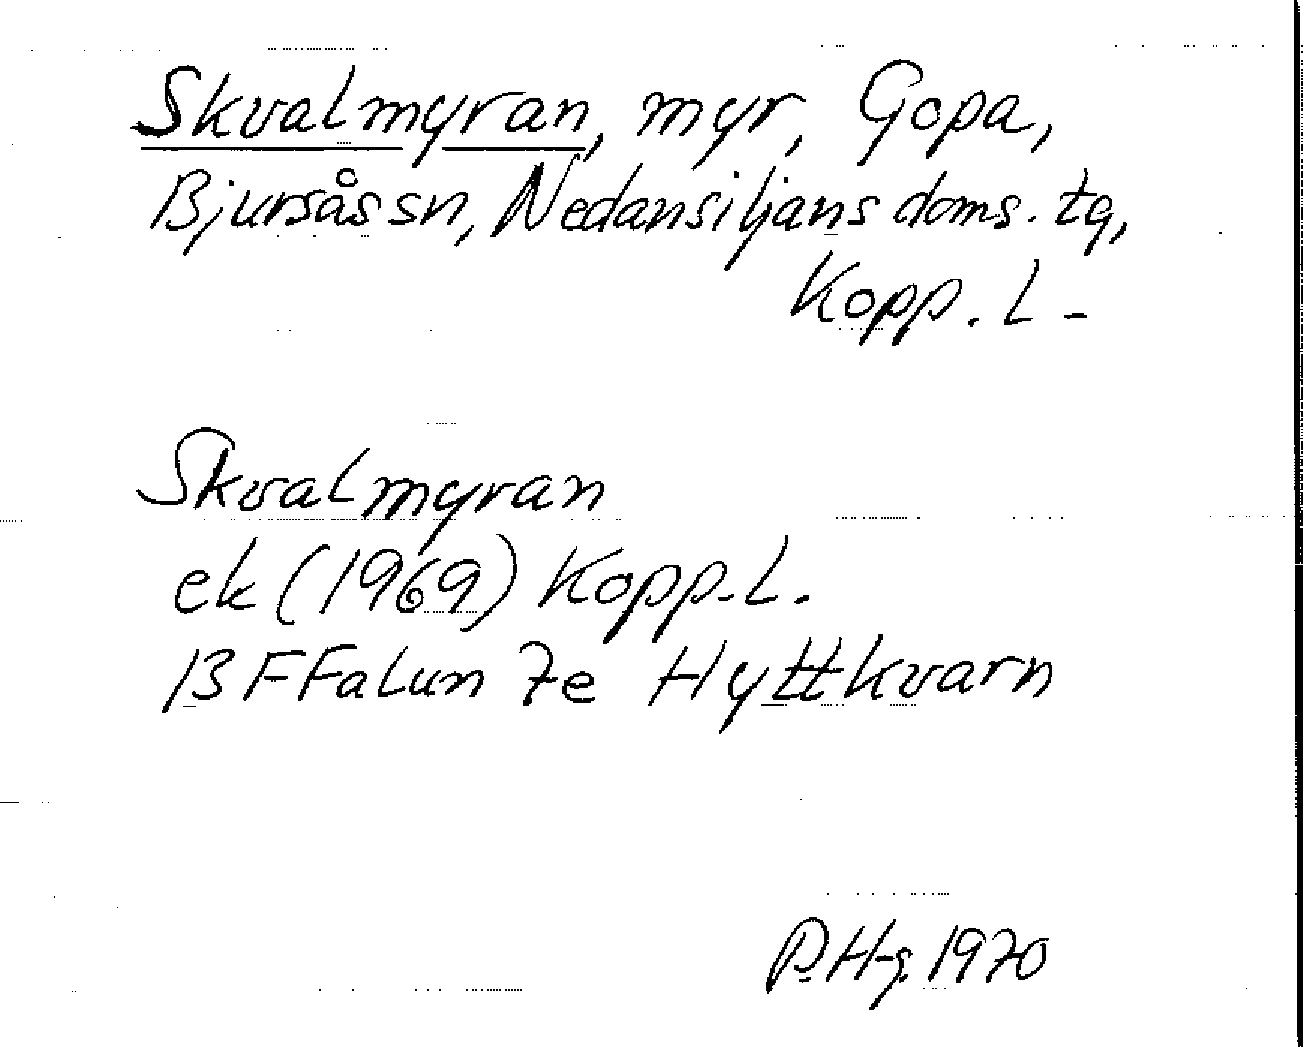 Skvalmyran, myr, Gopa,
Bjursås sn, Nedansiljans doms. tg,
Kopp. L -
Skvalmyran
ek (1969) Kopp. L.
BF Falun 7e Hyttkvarn
P. H-g. 1970